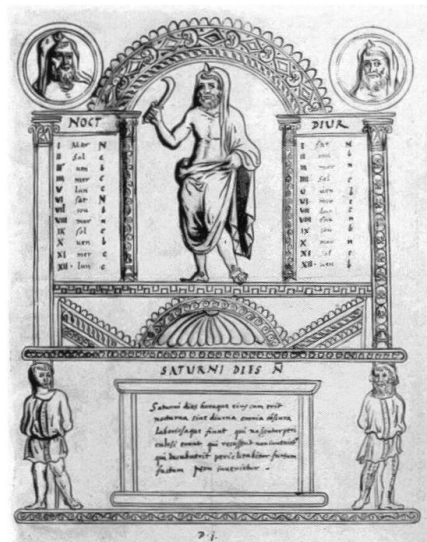 NOCT
I Mar N
II Sol c
III uen b
IIII mer c
V Lun c
VI sat N
VII iou b
VIII mar n
IX sol c
X uen b
XI mer c
XII lun c
DIUR
I sat N
II iou b
III mar n
IIII sol c
V uen b
VI mer c
VII lun c
VIII sat n
IX iou b
X mar n
XI sol c
XII uen b
SATURNI DIES N̄
Saturni dies horaque eius cum erit
nocturna siue diurna omnia obscura
laboriosaque fiunt qui nascentur peri
culosi erunt qui recesserit non inuenietur
qui decubuerit periclitabitur furtum
factum non inuenietur